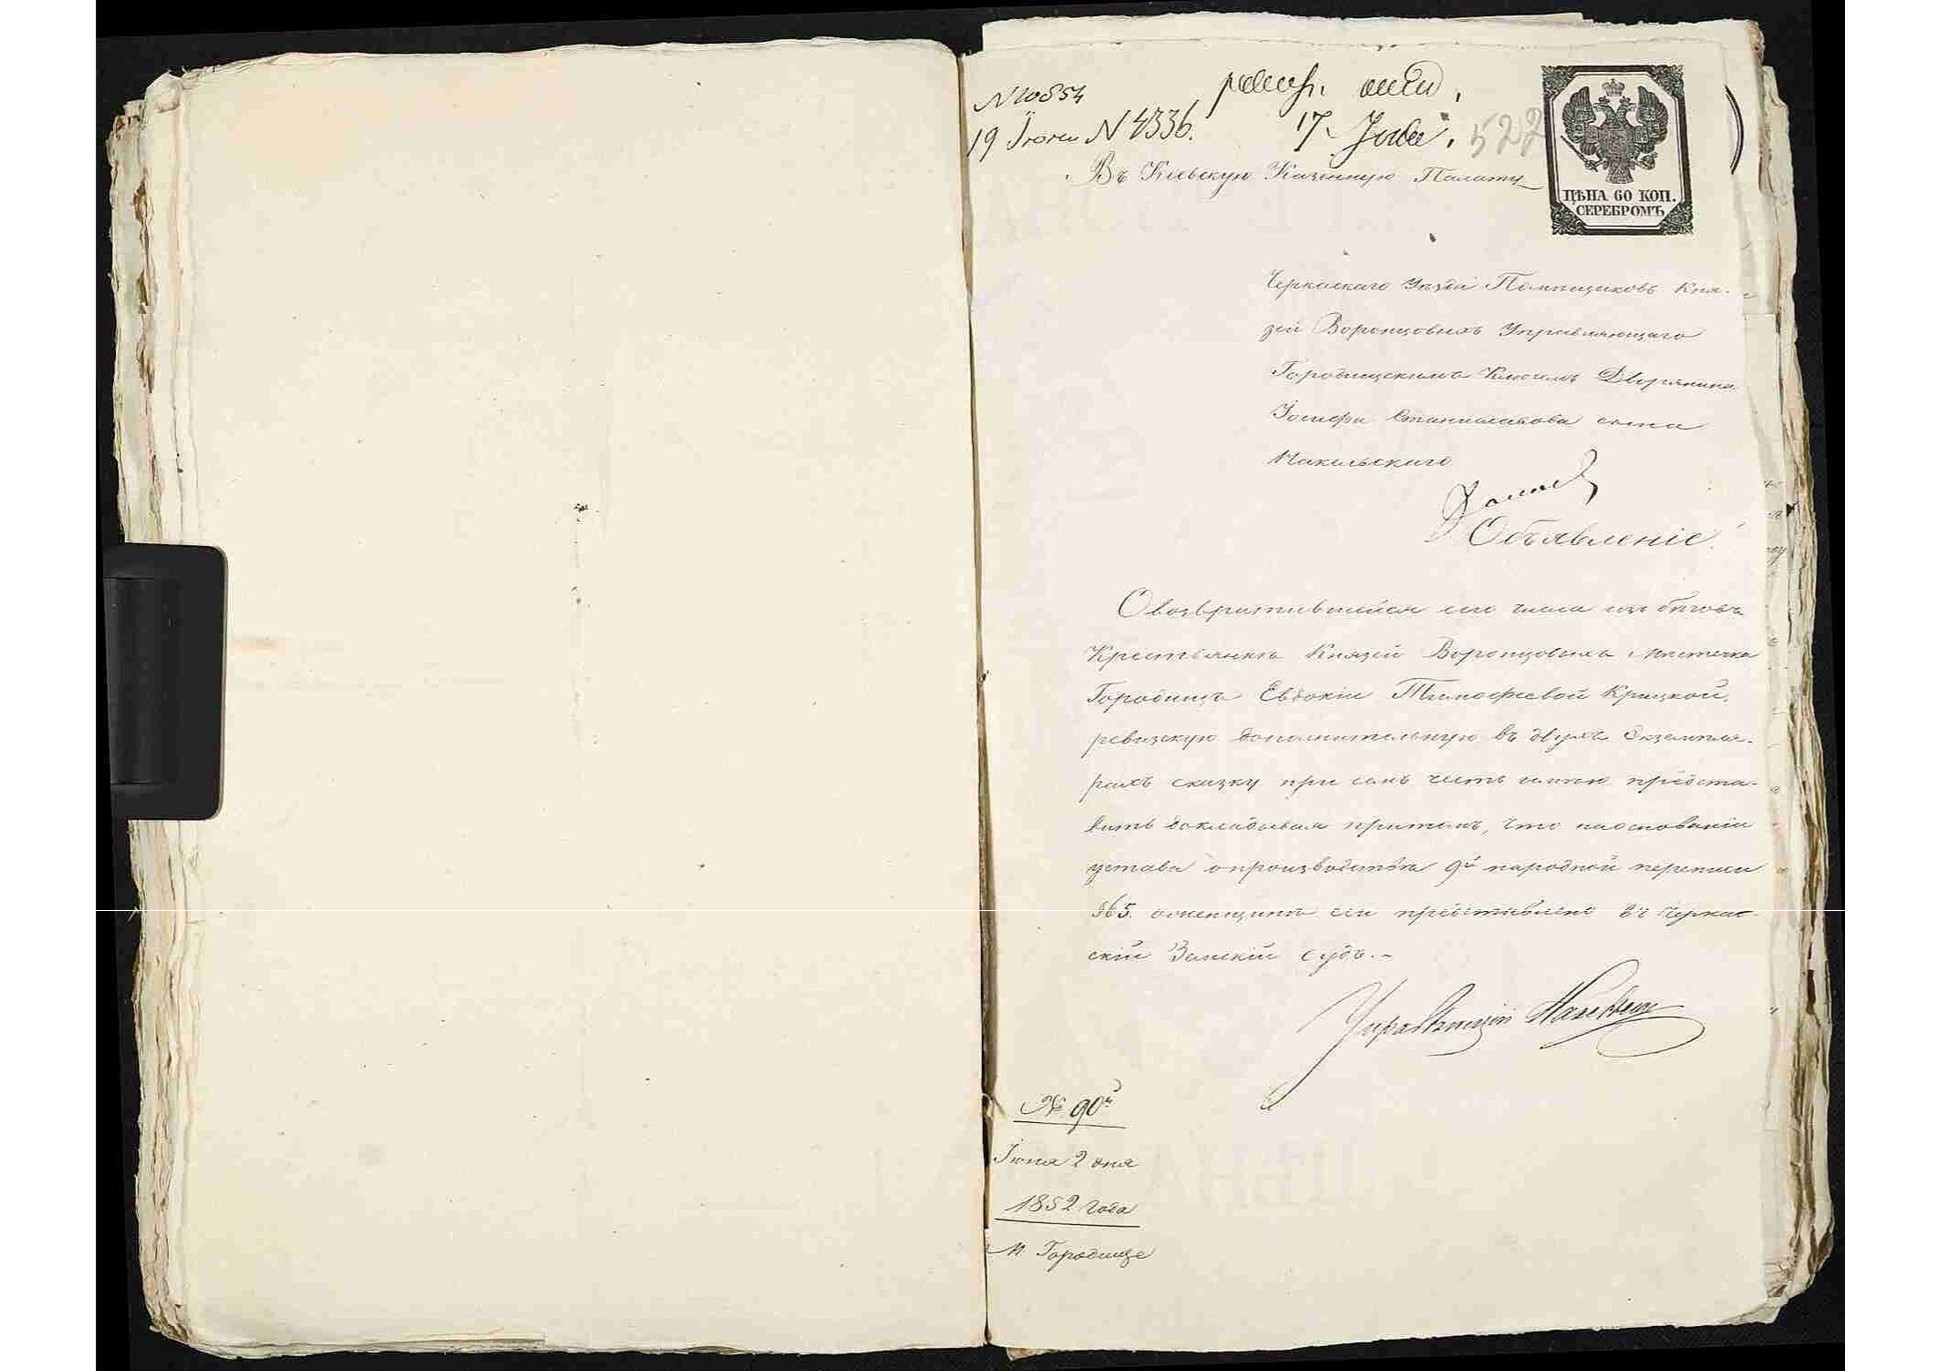 N 10854
ревиз. отд.
19 Іюня N 4336.
17 Іюня.
522
Въ Кіевскую Казенную Палату
ЦѢНА 60 КОП.
СЕРЕБРОМЪ
Черкаскаго Уѣзда Помѣщиковъ Кня-
зей Воронцовыхъ Управляющаго
Городищскимъ Ключемъ Дворянина
Іосифа Станиславова сына
Накельскаго
Объявленіе.
О возвратившейся сего числа изъ бѣговъ
Крестьянкѣ Князей Воронцовыхъ мѣстечка
Городищъ Евдокіи Тимофеевой Крицкой,
ревизскую дополнительную въ двухъ Экземпля-
рахъ сказку при семъ честь имѣю предста-
вить докладывая притомъ, что на основаніи
устава о производствѣ 9й народной переписи
о женщинѣ сей представлено въ Черкас-
скій Земскій судъ.-
Управляющій
№ 90й
Іюня 2 дня
1852 Года
М. Городище